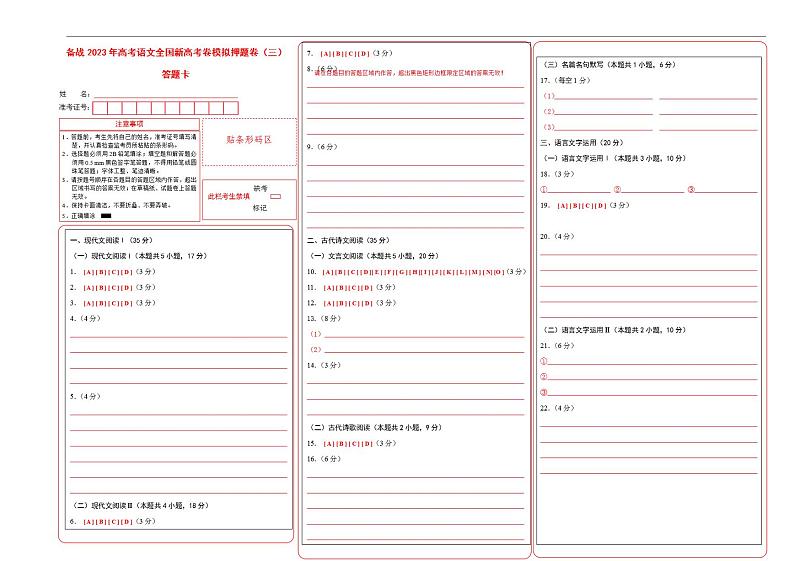 备战 2023 年高考语文全国新高考卷模拟押题卷（三）
答题卡
姓　名：
准考证号：
注意事项
1．答题前，考生先将自己的姓名，准考证号填写清楚，并认真检查监考员所粘贴的条形码。
2．选择题必须用 2B 铅笔填涂；填空题和解答题必须用 0.5 mm 黑色签字笔答题，不得用铅笔或圆珠笔答题；字体工整、笔迹清晰。
3．请按题号顺序在各题目的答题区域内作答，超出区域书写的答案无效；在草稿纸、试题卷上答题无效。
4．保持卡面清洁，不要折叠、不要弄破。
5．正确填涂
贴条形码区
缺考
此栏考生禁填
标记
一、现代文阅读Ⅰ（35 分）
（一）现代文阅读Ⅰ（本题共 5 小题，17 分）
1． [A] [B] [C] [D]（3 分）
2． [A] [B] [C] [D]（3 分）
3． [A] [B] [C] [D]（3 分）
4．（4 分）
5．（4 分）
（二）现代文阅读Ⅱ（本题共 4 小题，18 分）
6． [A] [B] [C] [D]（3 分）
7． [A] [B] [C] [D]（3 分）
8．（6 分）
请在各题目的答题区域内作答，超出黑色矩形边框限定区域的答案无效！
9．（6 分）
二、古代诗文阅读（35 分）
（一）文言文阅读（本题共 5 小题，20 分）
10． [A] [B] [C] [D][E] [F] [G] [H][I] [J] [K] [L] [M] [N][O]（3 分）
11． [A] [B] [C] [D]（3 分）
12． [A] [B] [C] [D]（3 分）
13．（8 分）
（1）
（2）
14．（3 分）
（二）古代诗歌阅读（本题共 2 小题，9 分）
15． [A] [B] [C] [D]（3 分）
16．（6 分）
（三）名篇名句默写（本题共 1 小题，6 分）
17．（每空 1 分）
（1）
（2）
（3）
三、语言文字运用（20 分）
（一）语言文字运用Ⅰ（本题共 3 小题，10 分）
18．（3 分）
① ② ③
19． [A] [B] [C] [D]（3 分）
20．（4 分）
（二）语言文字运用Ⅱ（本题共 2 小题，10 分）
21．（6 分）
①
②
③
22．（4 分）